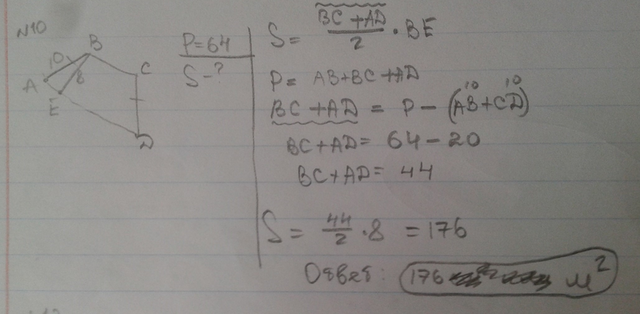 №10
B
10
8
A
E
C
D
P=64
S-?
S = (BC + AD)/2 · BE
P = AB+BC+AD
BC + AD = P - (AB + CD)
10 10
BC+AD = 64 - 20
BC+AD = 44
S = 44/2 · 8 = 176
Ответ: 176 м²